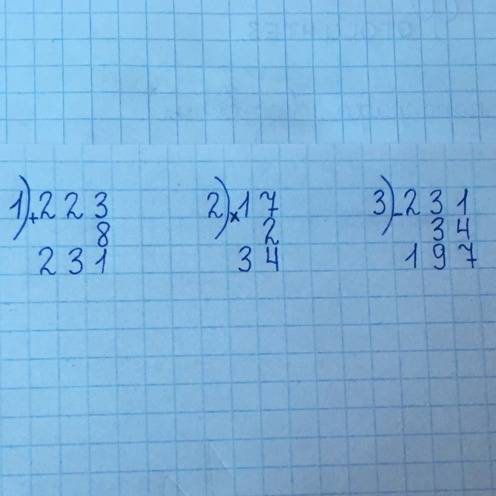 1) + 223
8
231
2) × 17
2
34
3) - 231
34
197